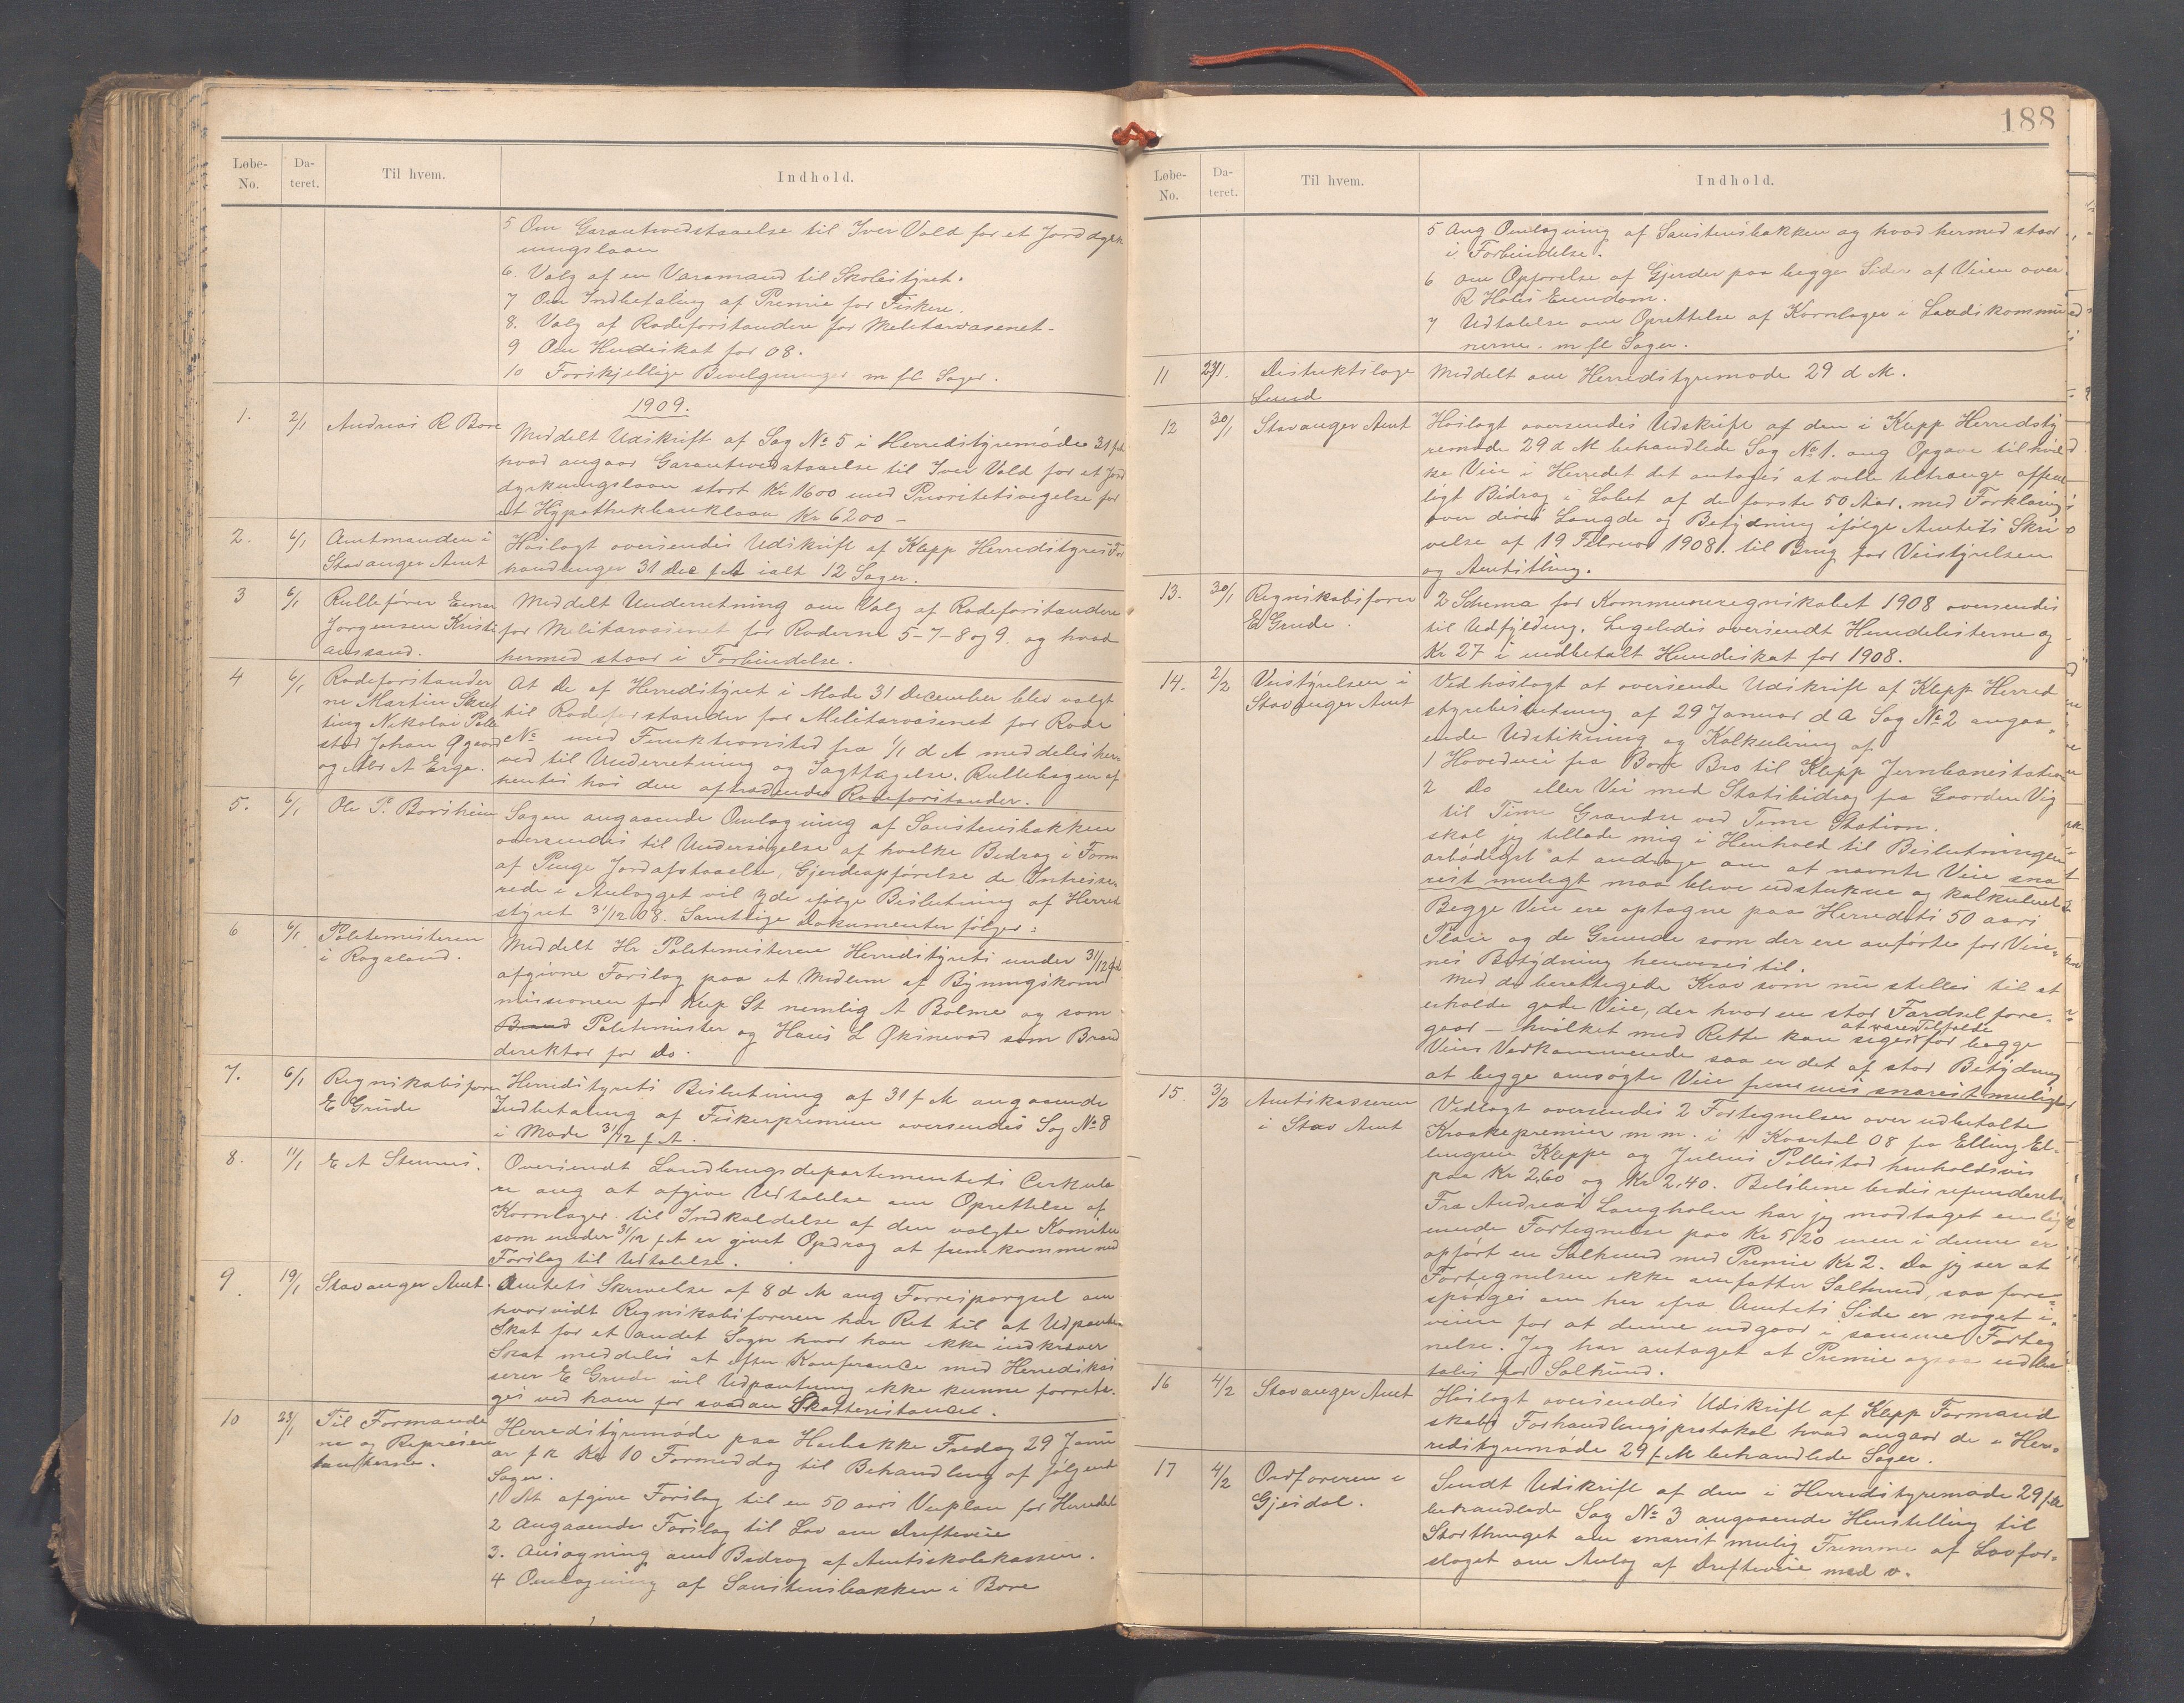 188
Løbe-No. Da-teret. Til hvem. Indhold.
5 Om Garantivedstaaelse til Iver Vold for et Jorddyrk
ningslaan
6. Valg af en Varamand til Skolestyret.
7 Om Indbetaling af Premie for Fiskere.
8. Valg af Rodeforstandere for Militærvæsenet-
9 Om Hundeskat for 08.
10 Forskjellige Bevilgninger m fl Sager.
1909.
1. 2/1 Andreas R Bore
Meddelt Udskrift af Sag № 5 i Herredstyremøde 31 f.
hvad angaar Garantivedstaaelse til Iver Vold for et Jord
dyrkningslaan stort Kr 1600 med Prioritetsvigelse for
et Hypothekbanklaan Kr 6200 -
2. 6/1 Amtmanden i
Stavanger Amt
Høilagt oversendes Udskrift af Klepp Herredstyres For
handlinger 31 Dec f A ialt 12 Sager.
3 6/1 Rullefører Einar
Jørgensen Kristi
anssand.
Meddelt Underretning om Valg af Rodeforstandere
for Militærvæsenet for Roderne 5-7-8 og 9. og hvad
hermed staar i Forbindelse.
4 6/1 Rodeforstander
ne Martin Skret
ting Nikolai Polle
stad Johan Øgaard
og Abr A Erga.
At De af Herredstyret i Møde 31 December blev valgt
til Rodeforstander for Militærvæsenet for Rode
№ med Funktionstid fra 1/1 d A meddeles her-
ved til Underretning og Iagttagelse. Rullebogen af
hentes hos den aftrædende Rodeforstander.
5. 6/1 Ole T. Borsheim
Sagen angaaende Omlægning af Sanstensbakken
oversendes til Undersøgelse af hvilke Bidrag i Form
af Penge Jordafstaaelse, Gjerdeopførelse de Intresse-
rede i Anlægget vil yde ifølge Beslutning af Herred
styret 31/12 08. Samtlige Dokumenter følger:
6 6/1 Politimesteren
i Rogaland.
Meddelt Hr Politimesteren Herredstyrets under 31/12
afgivne Forslag paa et Medlem af Bygningskom
missionen for Klep St nemlig A Bolme og som
Brand Politimester og Hans L Øksnevad som Brand
direktør for Do.
7. 6/1 Regnskabsfører
E Grude
Herredstyrets Beslutning af 31 f M angaaende
Indbetaling af Fiskerpremien oversendes Sag № 8
i Møde 31/12 f A.
8. 11/1 E A Stenus.
Oversendt Landbrugsdepartementets Cirkulæ
re ang at afgive Udtalelse om Oprettelse af
Kornlager til Indkaldelse af den valgte Komitee
som under 31/12 f A er givet Opdrag at fremkomme med
Forslag til Udtalelse.
9 19/1 Stavanger Amt.
Amtets Skrivelse af 8 d M ang Forrespørgsel om
hvorvidt Regnskabsføreren har Ret til at Udpante
Skat for et andet Sogn hvor han ikke indkræver
Skat meddeles at efter Konferance med Herredskas
serer E Grude vil Udpantning ikke kunne foreta-
ges ved ham for saadan Skatterestance.
10 23/1 Til Formænde
ne og Repræsen
tanterne.
Herredstyremøde paa Husbakke Fredag 29 Janu
ar f k Kl 10 Formiddag til Behandling af følgende
Sager.
1 At afgive Forslag til en 50 aars Veiplan for Herredet
2 Angaaende Forslag til Lov om Drifteveie
3. Ansøgning om Bidrag af Amtsskolekassen.
4 Omlægning af Sanstensbakken i Bore
Løbe-No. Da-teret. Til hvem. Indhold.
5 Ang Omlægning af Sanstensbakken og hvad hermed staar
i Forbindelse.
6 om Opførelse af Gjerder paa begge Sider af Veien over
R Hols Eiendom.
7 Udtalelse om Oprettelse af Kornlager i Landskommu
nerne. m fl Sager.
11 23/1. Distriktslæge
Lund
Meddelt om Herredstyremøde 29 d M.
12 30/1 Stavanger Amt
Høilagt oversendes Udskrift af den i Klepp Herredsty
remøde 29 d M behandlede Sag № 1. ang Opgave til hvil
ke Veie i Herredet det antages at ville tiltrænge offent
ligt Bidrag i Løbet af de første 50 Aar. med Forklaring
over deres Længde og Betydning ifølge Amtets Skri
velse af 19 Februar 1908. til Brug for Veistyrelsen
og Amtsthing.
13. 30/1 Regnskabsfører
E Grude.
2 Schema for Kommuneregnskabet 1908 oversendes
til Udfylding. Ligeledes oversendt Hundelisterne og
Kr 27 i indbetalt Hundeskat for 1908.
14. 2/2 Veistyrelsen i
Stavanger Amt
Vedhøilagt at oversende Udskrift af Klepp Herred
styrebeslutning af 29 Januar d A Sag № 2 angaa-
ende Udstikning og Kalkulering af
1 Hovedvei fra Bore Bro til Klepp Jernbanestation
2 Do eller Vei med Statsbidrag fra Gaarden Vig
til Time Grændse ved Time Station.
skal jeg tillade mig i Henhold til Beslutningen
ærbødigst at andrage om at nævnte Veie sna
rest muligt maa blive udstukne og kalkulerede
Begge Veie ere optagne paa Herredets 50 aars
Plan og de Grunde som der ere anførte for Vei-
nes Betydning henvises til.
Med de berettigede Krav som nu stilles til at
erholde gode Veie, der hvor en stor Færdsel fore-
gaar - hvilket med Rette kan siges at være Tilfælde for begge
Veies Vedkommende saa er det af stor Betydning
at begge ansøgte Veie fremmes snarest muligt
15. 3/2 Amtskasseren
i Stav Amt
Vedlagt oversendes 2 Fortegnelser over udbetalte
Kraakepremier m m. i 4 Kvartal 08 fra Elling El-
lingsen Kleppe og Julius Pollestad henholdsvis
paa Kr 2,60 og Kr 2,40. Beløbene bedes refunderet.
Fra Andreas Langholm har jeg modtaget en lig
nende Fortegnelse paa Kr 5,20 men i denne er
opført en Sælhund med Premie Kr 2. Da jeg ser at
Fortegnelsen ikke omfatter Sælhund, saa fore-
spørges om her ifra Amtets Side er noget i-
veien for at denne indgaar i samme Forteg
nelse. Jeg har antaget at Premie ogsaa udbe
tales for Sælhund.
16 4/2 Stavanger Amt
Høilagt oversendes Udskrift af Klepp Formand
skabs Forhandlingsprotokol hvad angaar de i Her-
redstyremøde 29 f M behandlede Sager.
17 4/2 Ordføreren i
Gjesdal.
Sendt Udskrift af den i Herredstyremøde 29 f M
behandlede Sag № 3 angaaende Henstilling til
Storthinget om snarest mulig Fremme af Lovfor-
slaget om Anlæg af Drifteveie med v.